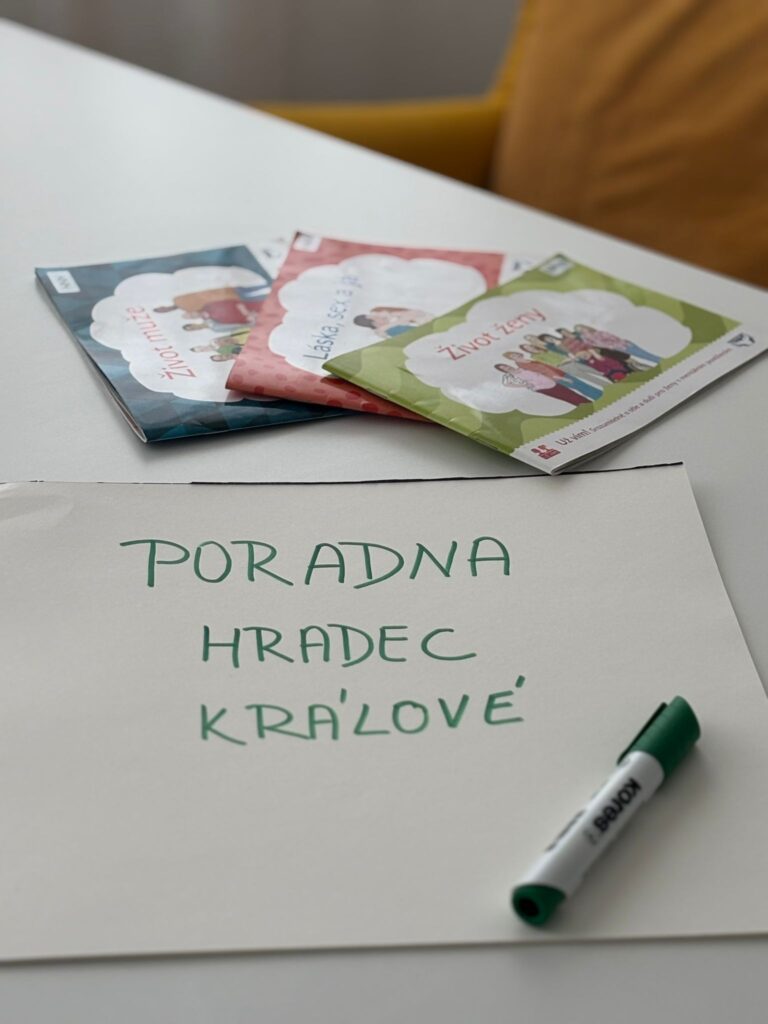 Život muže
Láska, sex a já
Život ženy
Už vím!
PORADNA
HRADEC
KRÁLOVÉ
kores